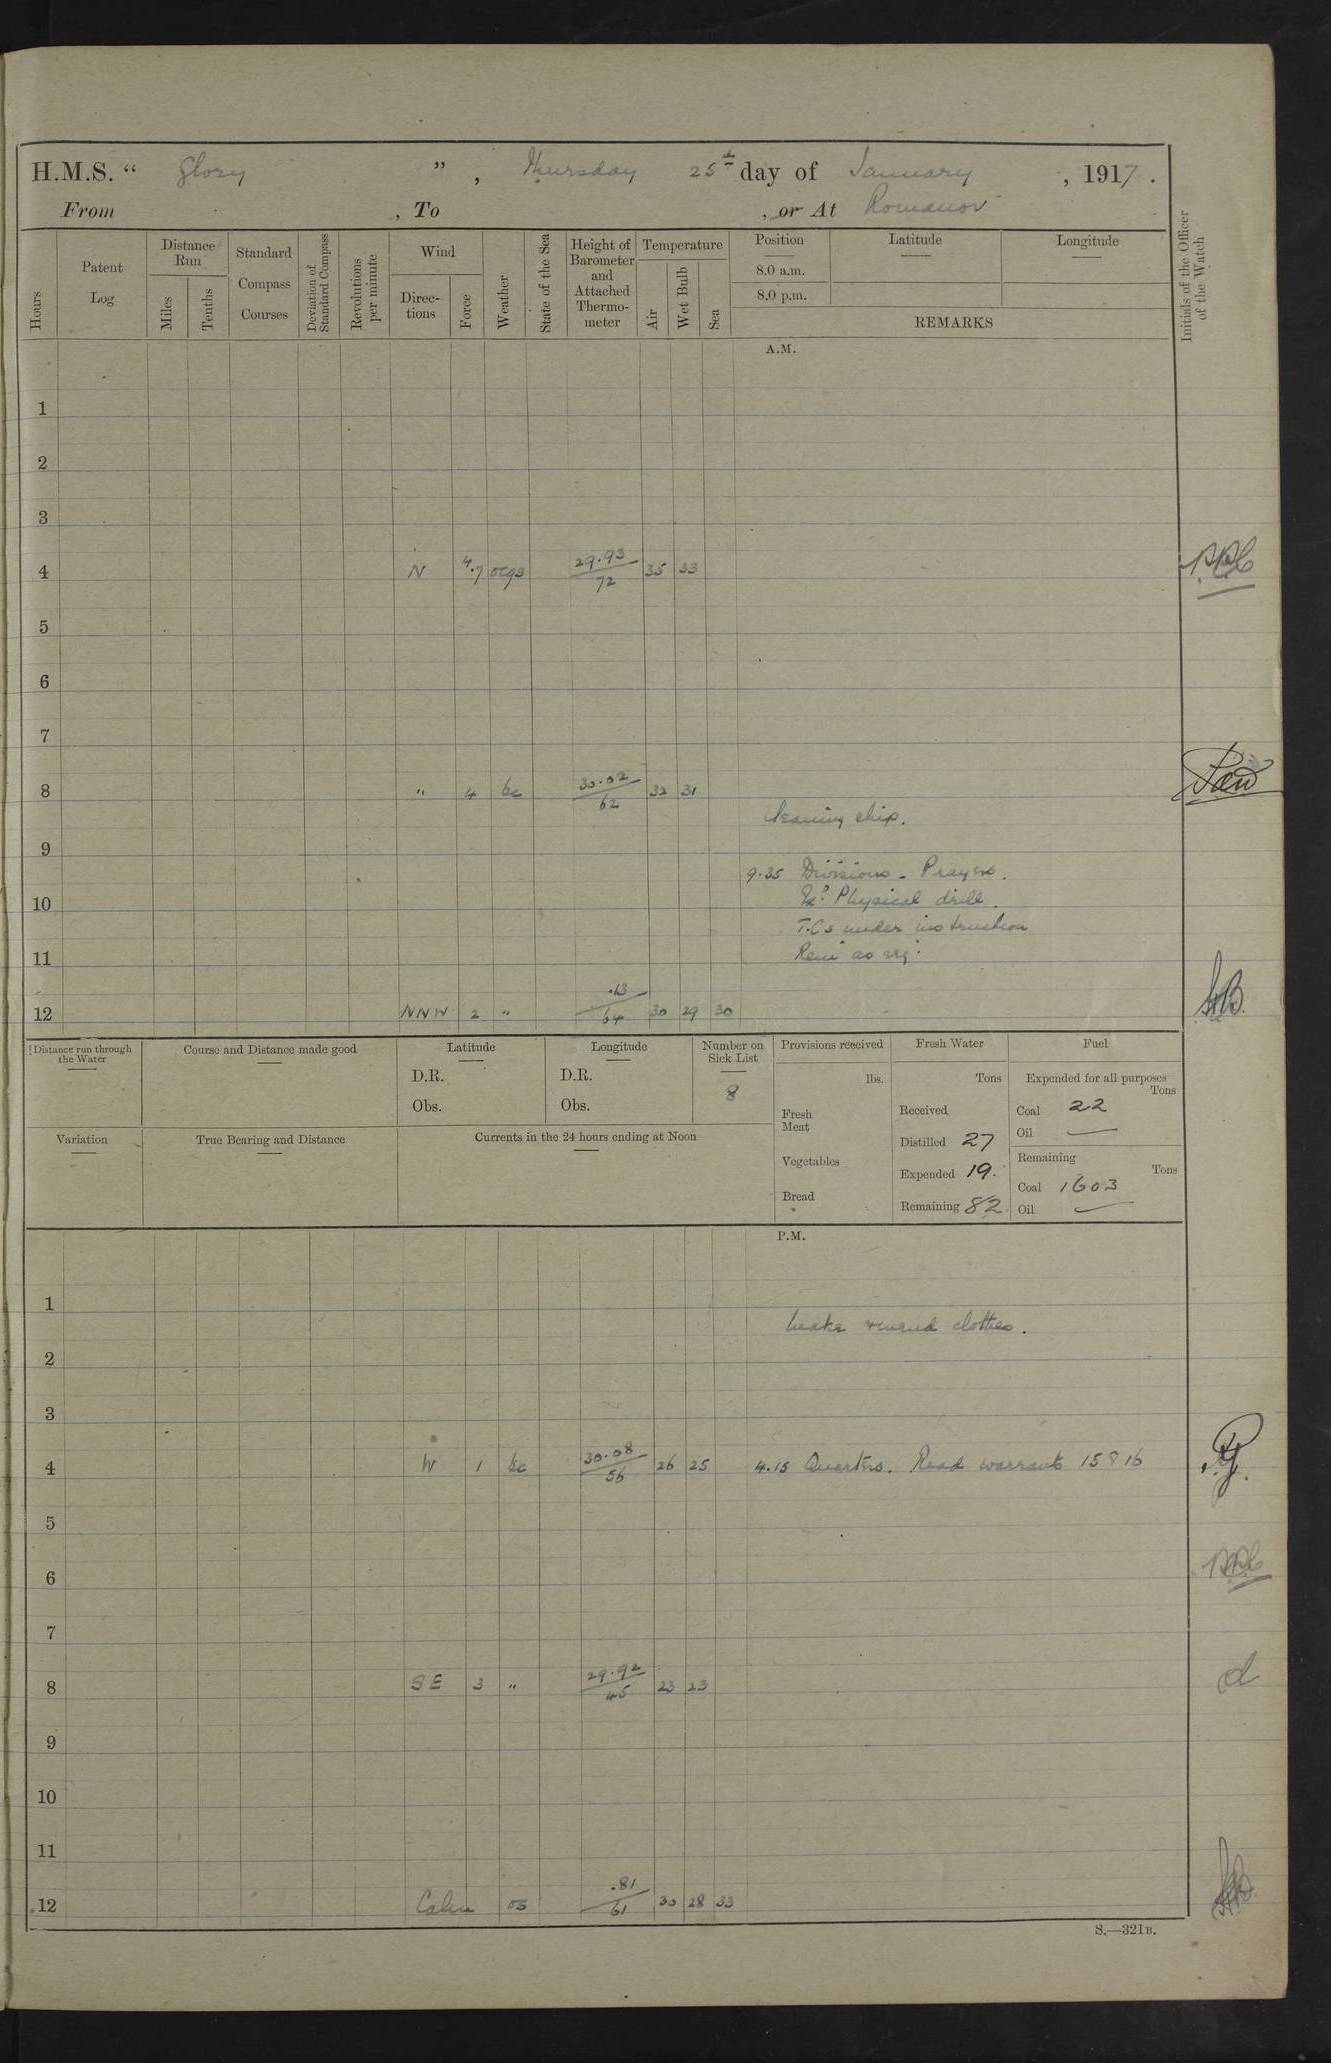 H.M.S. “ Glory ” , Thursday 25th day of January , 1917 .
From , To , or At Romanov
Hours
Patent Log
Distance Run
Miles
Tenths
Standard Compass Courses
Deviation of Standard Compass
Revolutions per minute
Wind
Direc-tions
Force
Weather
State of the Sea
Height of Barometer and Attached Thermo-meter
Temperature
Air
Wet Bulb
Sea
Position
8.0 a.m.
8.0 p.m.
Latitude
Longitude
REMARKS
Initials of the Officer of the Watch
A.M.
1
2
3
4 N 4.7 ocqs 29.93/72 35 33
5
6
7
8 " 4 bc 30.02/62 32 31
Cleaning ship.
9
9.35 Divisions - Prayers.
10 Physical drill.
T.Cs under instruction
11
12 NNW 2 " .13/64 30 29 30
Distance run through the Water
Course and Distance made good
Latitude
D.R.
Obs.
Longitude
D.R.
Obs.
Number on Sick List
8
Provisions received
lbs.
Fresh Meat
Vegetables
Bread
Fresh Water
Tons
Received
Distilled 27
Expended 19.
Remaining 82
Fuel
Expended for all purposes
Tons
Coal 22
Oil —
Remaining
Tons
Coal 1603
Oil —
Variation
True Bearing and Distance
Currents in the 24 hours ending at Noon
P.M.
1
Make & mend clothes.
2
3
4 W 1 bc 30.08/56 26 25 4.15 Quarters. Read warrants 15 & 16
5
6
7
8 SE 3 " 29.92/45 23 23
9
10
11
12 Calm os .81/61 30 28 33
S.—321B.